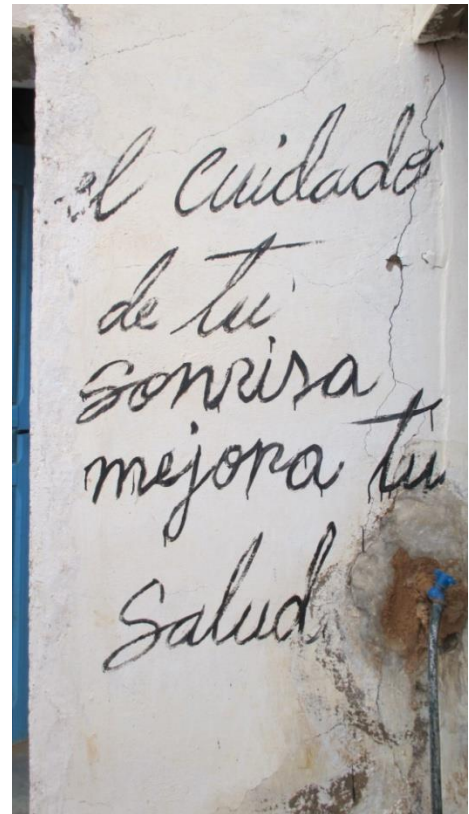 el cuidado
de tu
sonrisa
mejora tu
salud